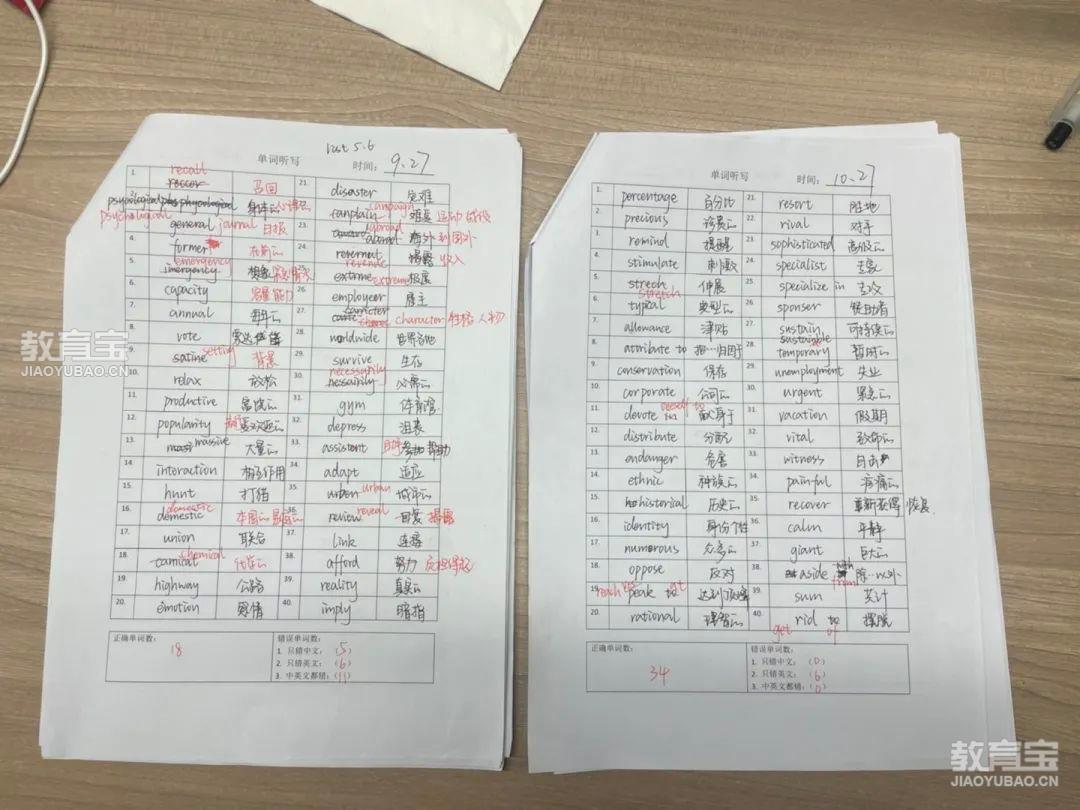 List 5.6
单词听写
时间: 9.27
1. roccor recall 召回
2. psycological psychological 身体的 心理的
3. general journal 日报
4. former 在前的
5. imergency emergency 想象 紧急情况
6. capacity 容量 能力
7. annual 每年的
8. vote
9. satine setting 背景
10. relax 放松
11. productive
12. popularity
13. massive 大量的
14. interaction 相互作用
15. hunt 打猎
16. domestic 本国的
17. union 联合
18. camical chemical 化学的
19. highway 公路
20. emotion 感情
21. disaster 灾难
22. canplain campaign 难 运动 战役
23. abroad 海外 到国外
24. revenue 收入
25. extrme extreme 极展
26. employeer 雇主
27. character 性格 人物
28. worldwide 世界各地
29. survive 生存
30. nessairily necessarily 必需的
31. gym 体育馆
32. depress 沮丧
33. assistent 帮助
34. adapt 适应
35. urban urban 城市的
36. review reveal 回复 揭露
37. link 连接
38. afford 努力
39. reality 真实的
40. imply 暗指
正确单词数:
18
错误单词数:
1. 只错中文: (5)
2. 只错英文: (6)
3. 中英文都错: (11)
单词听写
时间: 10.27
1. percentage 百分比
2. precious 珍贵的
3. remind 提醒
4. stimulate 刺激
5. strech stretch 伸展
6. typical 典型的
7. allowance 津贴
8. attribute to 把…归因于
9. conservation 保存
10. corporate 公司的
11. devote oneself to 献身于
12. distribute 分配
13. endanger 危害
14. ethnic 种族的
15. historial 历史的
16. identity 身份 个性
17. numerous 众多的
18. oppose 反对
19. reach peak 达到顶峰
20. rational 理智的
21. resort 胜地
22. rival 对手
23. sophisticated 高级的
24. specialist 专家
25. specialize in 专攻
26. sponser 赞助者
27. sustain sustainable 可持续的
28. temporary 暂时的
29. unemployment 失业
30. urgent 紧急的
31. vacation 假期
32. vital 致命的
33. witness 目击
34. painful 疼痛的
35. recover 重新获得 恢复
36. calm 平静
37. giant 巨大的
38. aside from 除…以外
39. sum 共计
40. get rid to of 摆脱
正确单词数:
34
错误单词数:
1. 只错中文: (0)
2. 只错英文: (6)
3. 中英文都错: (0)
教育宝
JIAOYUBAO.CN
教育宝
JIAOYUBAO.CN